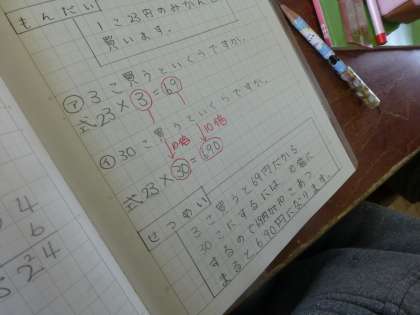 もんだい
1こ23円のみかんを
買います。
㋐ 3こ買うといくらですか。
式 23×3=69
㋑ 30こ買うといくらですか。
10倍 10倍
式 23×30=690
せつめい
3こ買うと69円だから
30こにするには10倍に
するので69円が10こあつ
まると690円になります。
4
6
24